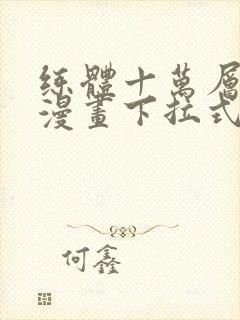 練體十萬層
漫畫下拉式
何鑫